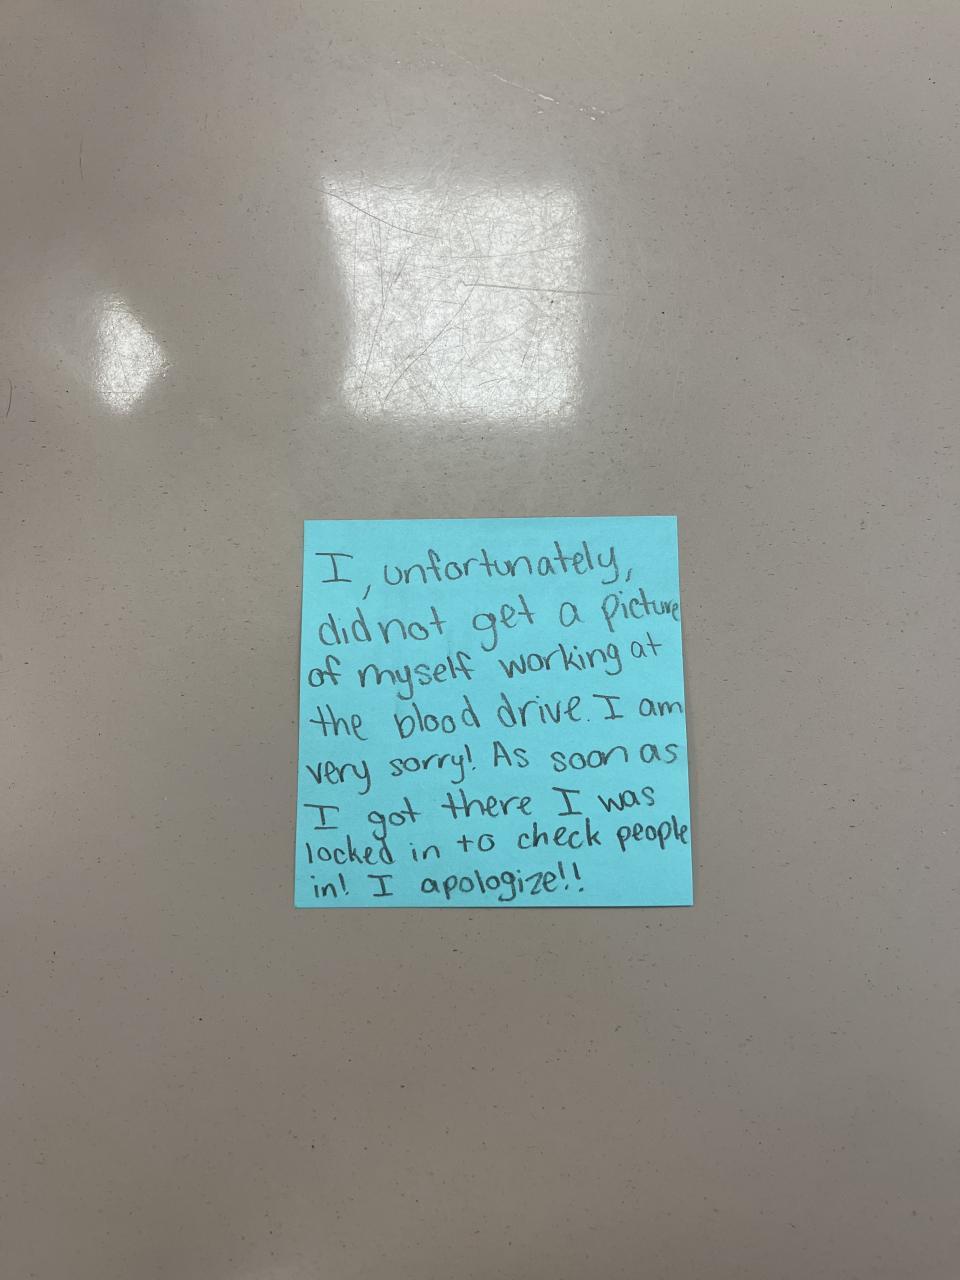 I, unfortunately,
did not get a picture
of myself working at
the blood drive. I am
very sorry! As soon as
I got there I was
locked in to check people
in! I apologize!!